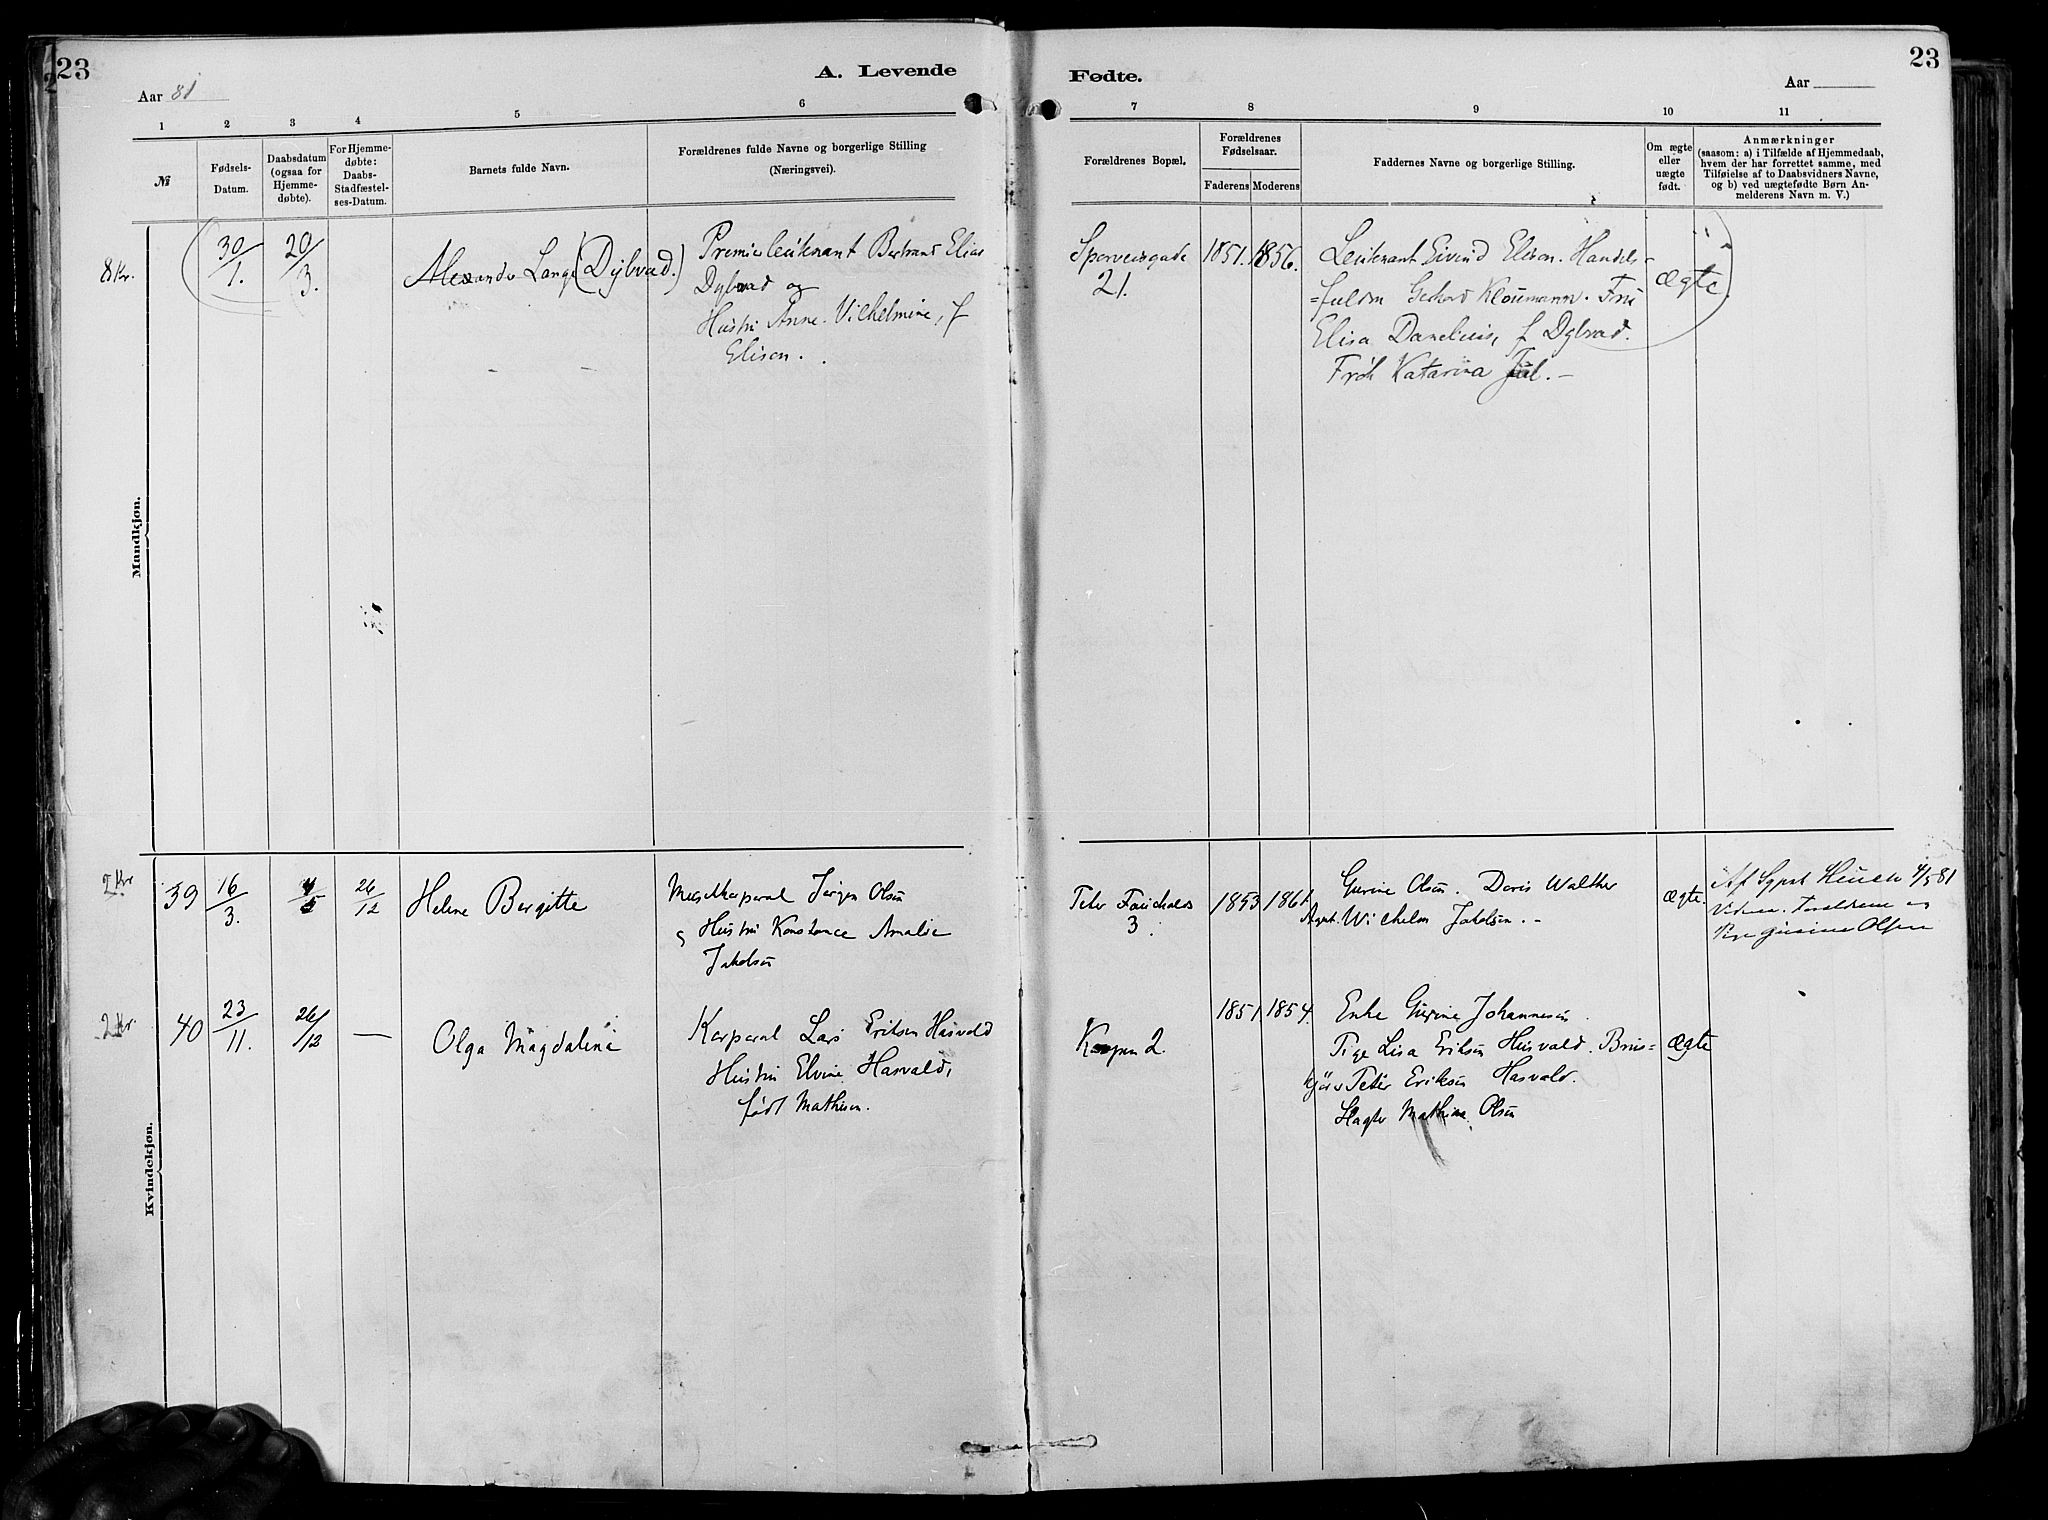 23
A. Levende
Aar 81
1 2 3 4 5 6
№
Fødsels-
Datum.
Daabsdatum
(ogsaa for
Hjemme-
døbte).
For Hjemme-
døbte:
Daabs-
Stadfæstel-
ses-Datum.
Barnets fulde Navn.
Forældrenes fulde Navne og borgerlige Stilling
(Næringsvei).
Mandkjøn.
8 Kr.
30/1.
20/3.
Alexander Lange (Dybvad.)
Premierleutenant Bertrand Elias
Dybvad og
Hustru Anne Vilhelmine, f
Elison.
Kvindekjøn.
2 Kr
39
16/3.
4/5
26/12
Helene Bergitte
Korporal Jørgen Olsen
Hustru Konstance Amalie
Jakobsen
2 Kr.
40
23/11.
26/12
—
Olga Magdalena
Korporal Lars Eriksen Hasvold
Hustru Elvine Hasvald,
født Mathisen.
23
Fødte.
Aar
7 8 9 10 11
Forældrenes Bopæl.
Forældrenes
Fødselsaar.
Faderens Moderens
Faddernes Navne og borgerlige Stilling.
Om ægte
eller
uægte
født.
Anmærkninger
(saasom: a) i Tilfælde af Hjemmedaab,
hvem der har forrettet samme, med
Tilføielse af to Daabsvidners Navne,
og b) ved uægtefødte Børn An-
melderens Navn m. V.)
Sporveisgade
21.
1851. 1856.
Leutenant Eivind Elison. Handels-
=fuldm Gerhard Kloumann. Fru
Elisa Danelius, f Dybvad.
Frøk Katarina Jul. —
Ægte
Peter
3
1853 1861
Gurine Olsen. Doris Walther
Wilhelm Jakobsen. —
Ægte.
Af Sgpr. Heuch 4/5 81
Forældrene og
Pige Gurine Olsen
2.
1851 1854.
Enke Gurine Johannesen
Pige Lisa Eriksen Husvald. Brus=
kjører Peter Eriksen Hasvald.
Slagter Mathias Olsen
Ægte